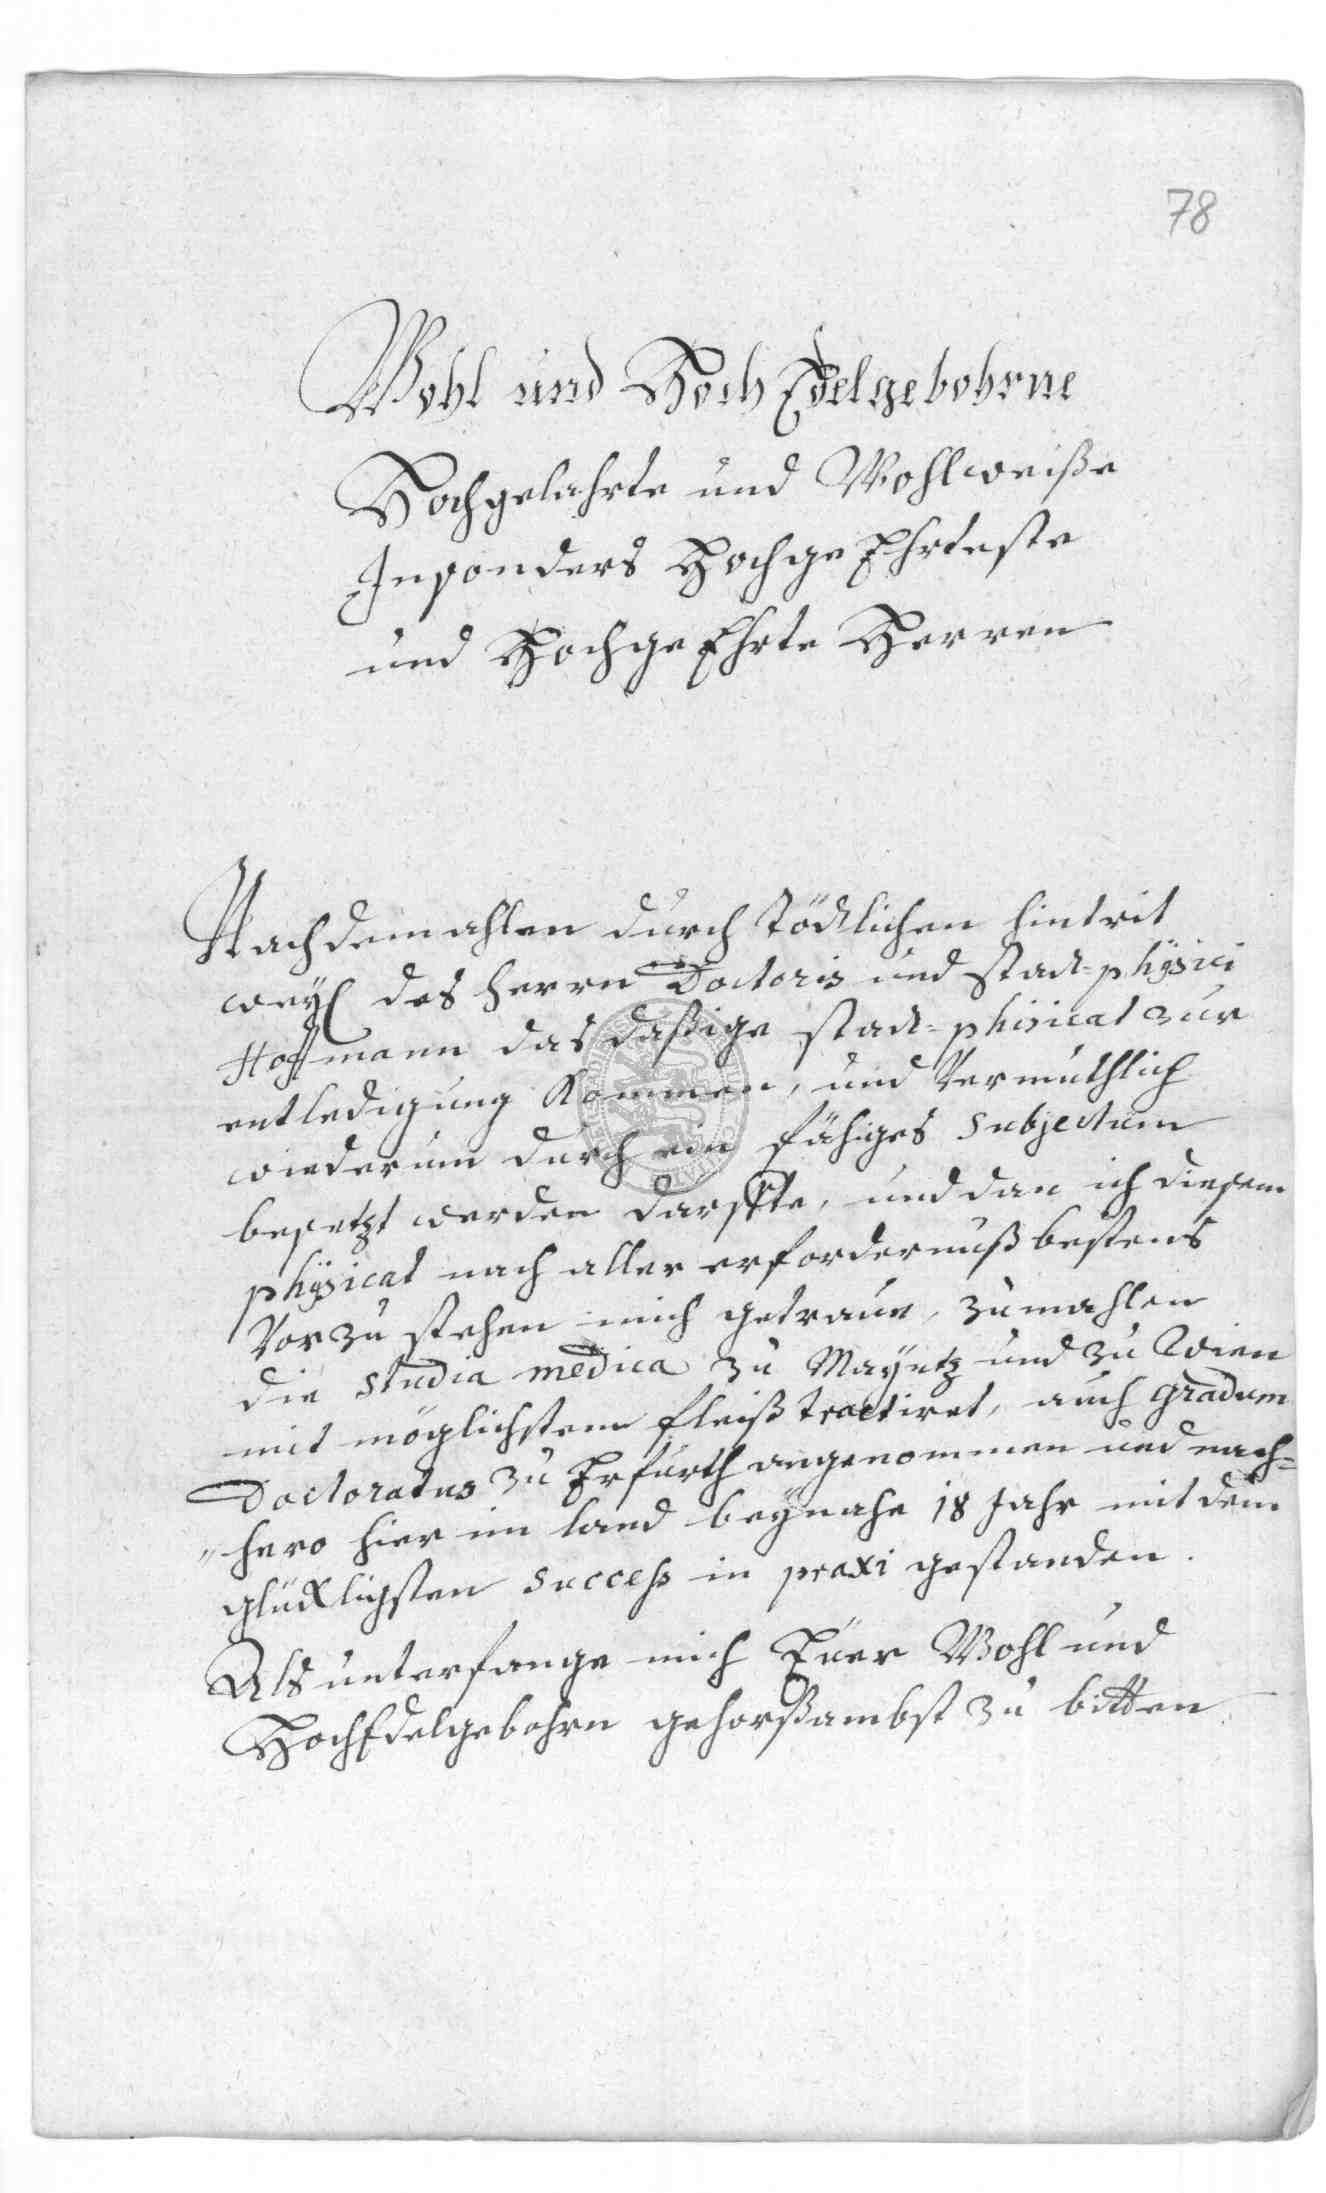 78
Wohl und Hoch Edelgebohrne
Hochgelahrte und Wohlweiße
Insonders Hochge Ehrteste
und Hochge Ehrte Herren
Nachdemahlen durch Tödlichen hintrit
weyl des Herrn Doctoris und stadt=physici
Hoffmann das dasige stadt=phisicat zur
entledigung kommen, und Vermuthlich
wiederum durch ein fähiges subjectum
besetzt werden darffte, und dan ich diesem
physicat nach aller erfordernuß bestens
Vorzu stehen mich getraue, zumahlen
die studia medica zu Mayntz und zu Wien
mit möglichstem fleiß tractiret, auch gradum
Doctoratus zu Erfurth angenommen und nach=
"hero hier im land beynahe 18 Jahr mit dem
glücklichsten success in praxi gestanden.
Als unterfange mich Euer Wohl und
HochEdelgebohrn gehorßambst zu bitten